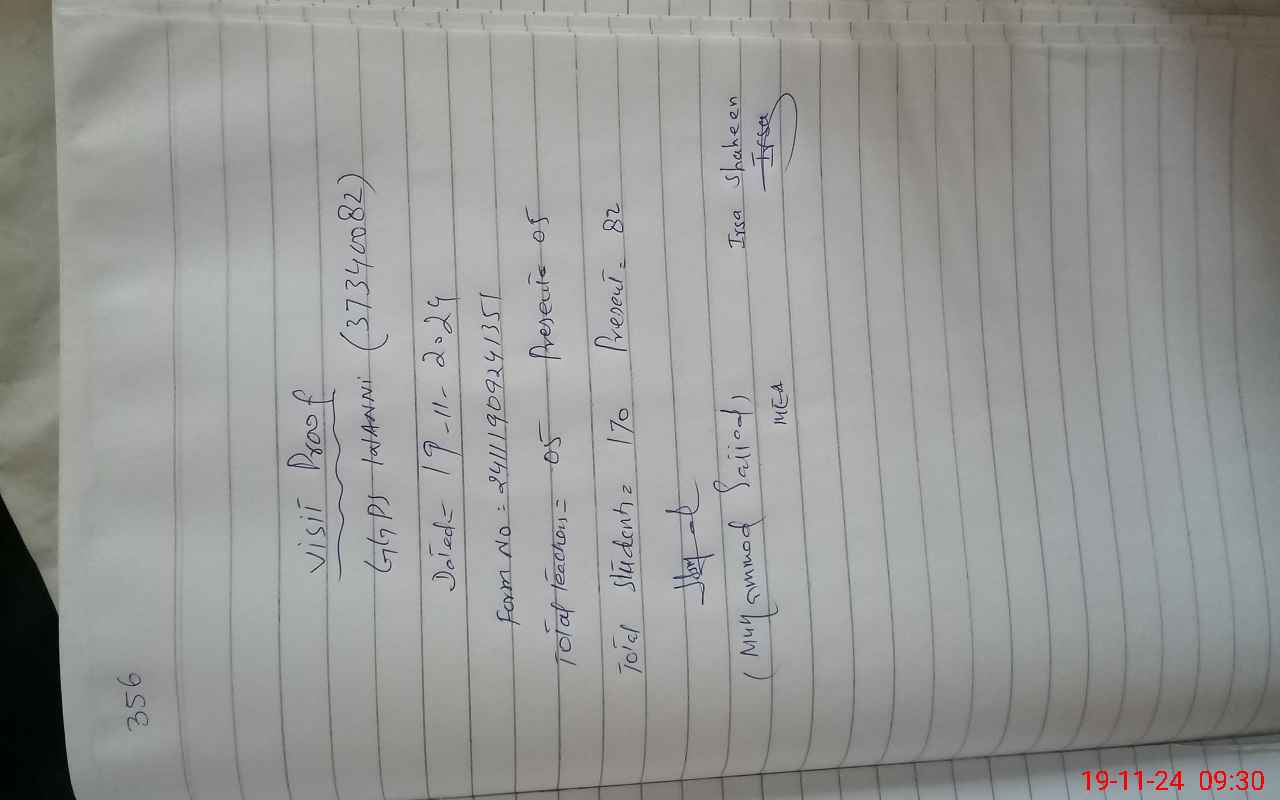 356
Visit Proof
GGPS WANNI (37340082)
Dated= 19-11-2024
Form No = 241119092241351
Total teachers= 05 Present= 05
Total students= 170 Present= 82
(Muhammad Sajjad) Irsa Shaheen
MEA Irsa
19-11-24 09:30